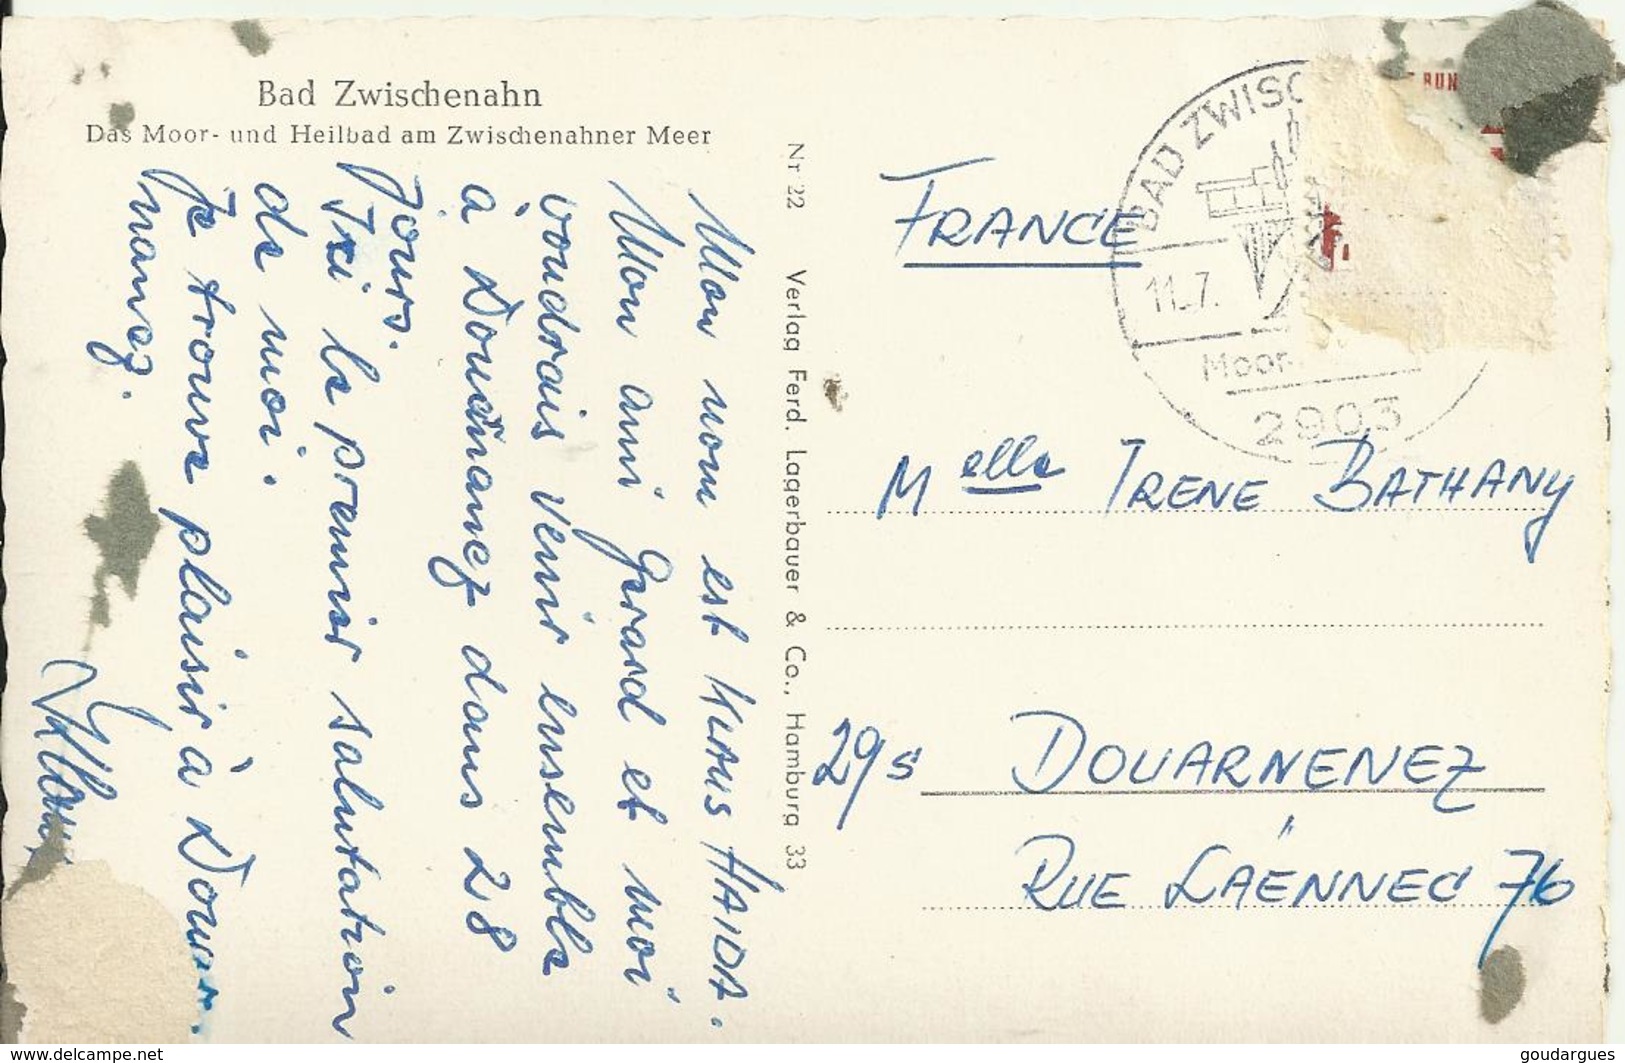 Bad Zwischenahn
Das Moor- und Heilbad am Zwischenahner Meer
Mon nom est KLAUS HAIDA.
Mon ami Gerard et moi
voudrais venir ensemble
à Douarnanez dans 28
Jours.
Ici le premier salutation
de moi.
Je trouve plaisir à Douar-
nanez.
Klaus
Nr 22 Verlag Ferd. Lagerbauer & Co., Hamburg 33
BAD ZWISC
11.7.
Moor-
2903
BUN
FRANCE
Melle IRENE BATHANY
29s DOUARNENEZ
RUE LAËNNEC 76
www.delcampe.net
goudargues